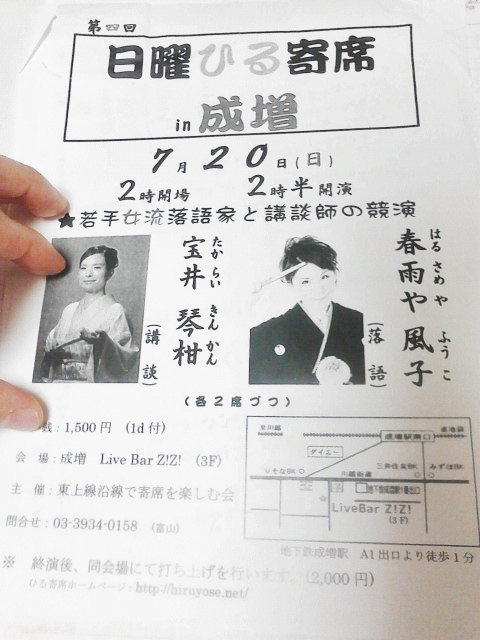 第四回
日曜ひる寄席
in 成増
7月20日(日)
2時開場 2時半開演
★若手女流落語家と講談師の競演
宝井 琴柑
たからい きんかん
(講談)
春雨や 風子
はるさめや ふうこ
(落語)
(各2席づつ)
銭:1,500円 (1d付)
会 場:成増 Live Bar Z!Z! (3F)
主 催:東上線沿線で寄席を楽しむ会
問合せ:03-3934-0158 (富山)
※ 終演後、同会場にて打ち上げを行います。(2,000円)
ひる寄席ホームページ:http://hiruyose.net/
至川越
成増駅南口
至池袋
ダイエー
りそなBK
川越街道
三井住友BK
みずほBK
LiveBar Z!Z!
(3F)
地下鉄成増駅 A1出口より徒歩1分